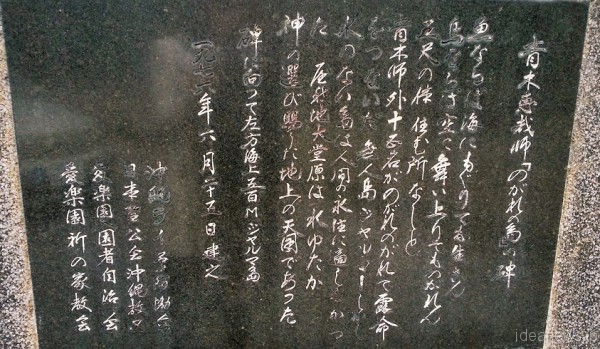 青木恵哉師「のがれの島」の碑
魚ならば海にもぐりても生きん
鳥ならば空に舞い上りてものがれん
五尺の体 住む所なしと
青木師外十五名がのがれのがれて露命
をつないだ無人島ジャルマ
水のない島は人間の永住に適しなかつ
た 屋我地大堂原は水ゆたか
神の選び賜うた地上の天国であつた
碑に向つて左方海上五百Mジャルマ島
一九七六年六月二十五日建之
沖縄
日本聖公会沖縄教区
愛楽園入園者自治会
愛楽園祈の家教会
ideanews.jp